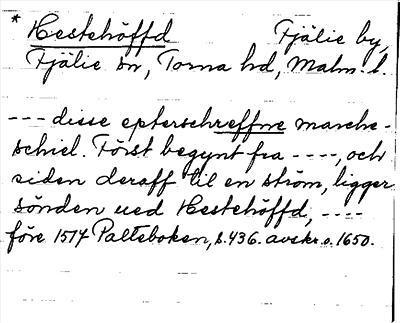 * Hestehöffd Fjälie by,
Fjälie sn, Torna hd, Malm. l.
--- disse epterschreffne marche-
schiel. Först begynt fra ----, och
siden deraff til en ström, ligger
sönden ued Hestehöffd, ----
före 1514 Palteboken, s. 436. avskr. o. 1650.